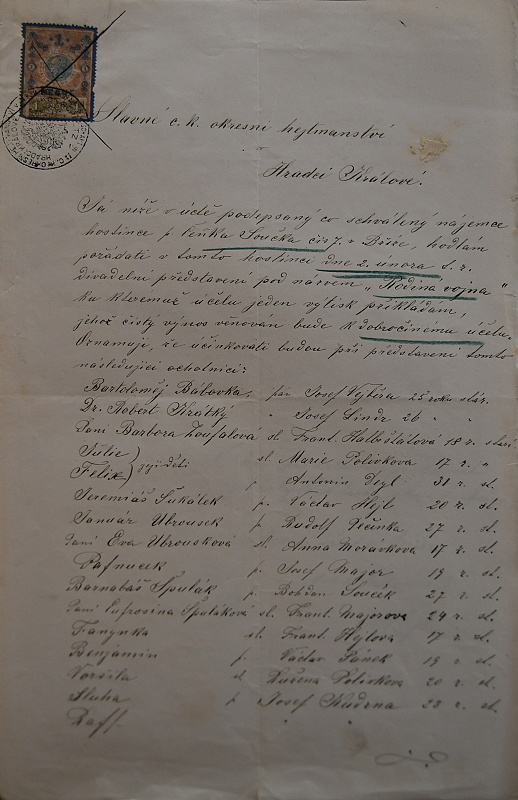 1
Slavné c. k. okresní hejtmanství
Hradci Králové.
Já níže v úctě podepsaný co schválený nájemce
hostince p. Součka čís 7. v Bříze, hodlám
pořádati v tomto hostinci dne 2. února t. r.
divadelní představení pod názvem „Rodina vojna“
ku kteremuž účelu jeden výtisk přikládám,
jehož čistý výnos věnován bude k dobročinému účelu.
Oznamuje, že účinkovati budou při představení tomto
následující ochotníci:
Bartoloměj Bábovka, pan Josef 25 roků stár.
Dr. Robert Krátký " Josef Lindr 26 " "
Paní Barbora Zoufalová sl. Frant. Halbštátová 18 r. stará
Julie sl. Marie Polívkova 17 r. "
Felix její děti p. Antonín 31 r. st.
Jeremiáš Šukálek p. Václav Hejl 20 r. st.
Január Ubrousek p. Rudolf Věchka 27 r. st.
Paní Eva Ubrousková sl. Anna Morávkova 17 r. st.
Pafnucek p. Josef Major 19 r. st.
Barnabáš Špulák p. Bohdan Souček 27 r. st.
Paní Eufrosina Špuláková sl. Frant. Majorova 24 r. st.
Fanynka sl. Frant. Hejlova 17 r. st.
Benjamin p. Václav Pánek 19 r. st.
Voršila sl. Růžena Polívkova 20 r. st.
Sluha p. Josef Kudrna 23 r. st.
Raff " "